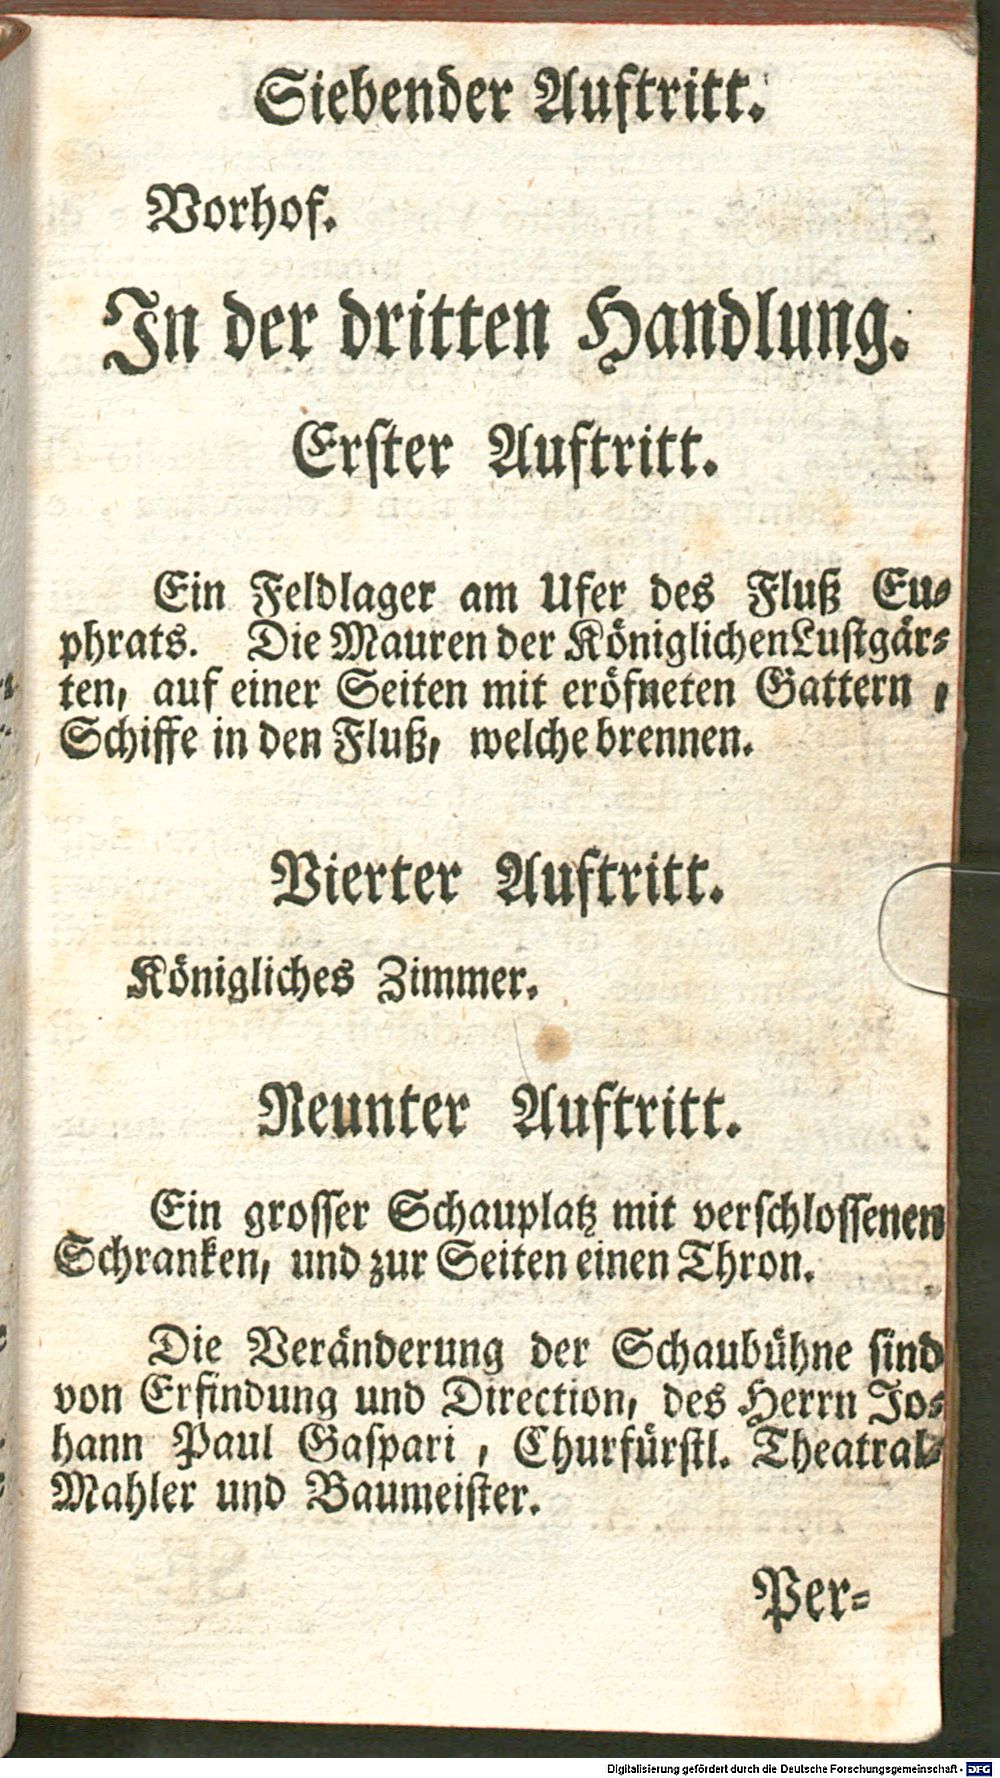 Siebender Auftritt.
Vorhof.
In der dritten Handlung.
Erster Auftritt.
Ein Feldlager am Ufer des Fluß Eu-
phrats. Die Mauren der Königlichen Lustgär-
ten, auf einer Seiten mit eröfneten Gattern,
Schiffe in den Fluß, welche brennen.
Vierter Auftritt.
Königliches Zimmer.
Neunter Auftritt.
Ein grosser Schauplatz mit verschlossenen
Schranken, und zur Seiten einen Thron.
Die Veränderung der Schaubühne sind
von Erfindung und Direction, des Herrn Jo-
hann Paul Gaspari, Churfürstl. Theatral-
Mahler und Baumeister.
Per-
Digitalisierung gefördert durch die Deutsche Forschungsgemeinschaft - DFG